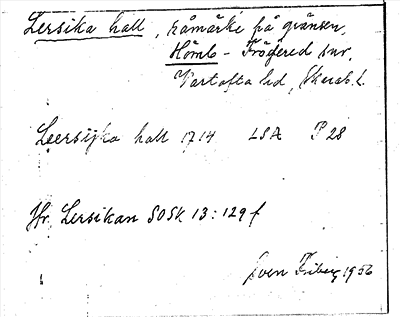 Lersika hall, råmärke på gränsen,
Hömb - Fröjered snr,
Vartofta hd, Skarab. l.
Leersijka hall 1714 LSA P 28
Jfr Lersikan SOSk 13:129 f
Sven Friberg 1956